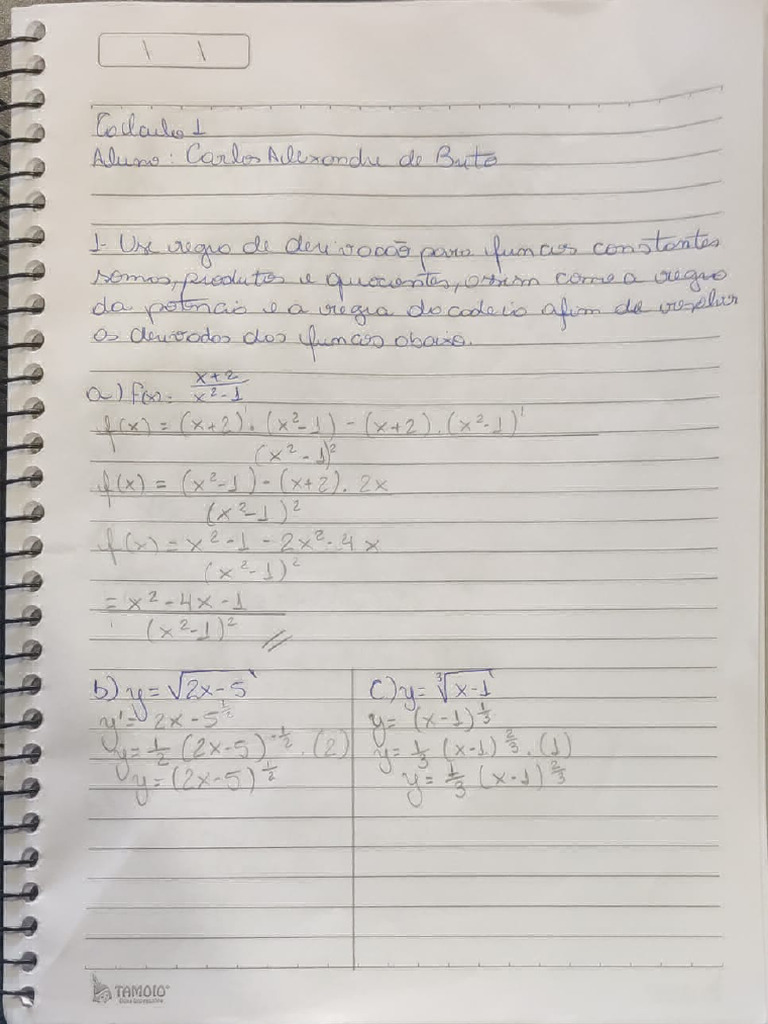 \ \
Calculo 1
Aluno: Carlos Alexandre de Brito
1- Use regra de derivação para funcões constantes
somas, produtos e quocientes, assim como a regra
da potência e a regra da cadeia afim de resolver
as derivadas das funcões abaixo.
a) f(x) = x+2 / x²-1
f(x) = (x+2)'. (x²-1) - (x+2). (x²-1)'
(x²-1)²
f(x) = (x²-1) - (x+2). 2x
(x²-1)²
f(x) = x² - 1 - 2x² - 4x
(x²-1)²
= x² - 4x - 1
(x²-1)² //
b) y = √2x-5
y' = 2x - 5^½
y = ½ (2x-5)^-½ . (2)
y = (2x-5)^½
c) y = ³√x-1
y = (x-1)^⅓
y = ⅓ (x-1)^⅔ . (1)
y = ⅓ (x-1)^⅔
TAMOIO